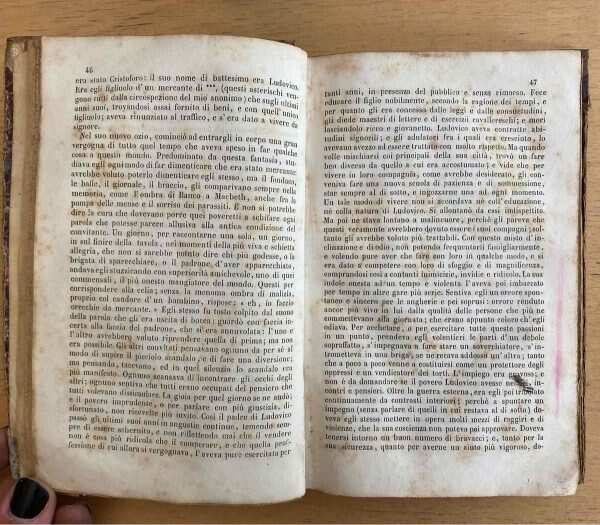 46
era stato Cristoforo: il suo nome di battesimo era Ludovico.
Era egli figliuolo d'un mercante di ***, (questi asterischi ven-
gono tutti dalla circospezione del mio anonimo) che sugli ultimi
anni suoi, trovandosi assai fornito di beni, e con quell'unico
figliuolo, aveva rinunziato al traffico, e s'era dato a vivere da
signore.
Nel suo nuovo ozio, cominciò ad entrargli in corpo una gran
vergogna di tutto quel tempo che aveva speso in far qualche
cosa a questo mondo. Predominato da questa fantasia, stu-
diava egli ogni modo di far dimenticare che era stato mercante:
avrebbe voluto poterlo dimenticare egli stesso, ma il fondaco,
le balle, il giornale, il braccio, gli comparivano sempre nella
memoria, come l'ombra di Banco a Macbeth, anche fra la
pompa delle mense e il sorriso dei parassiti. E non si potrebbe
dire la cura che dovevano porre quei poveretti a schifare ogni
parola che potesse parere allusiva alla antica condizione del
convitante. Un giorno, per raccontarne una sola, un giorno,
in sul finire della tavola, nei momenti della più viva e schietta
allegria, che non si sarebbe potuto dire chi più godesse, o la
brigata di sparecchiare, o il padrone, d'aver apparecchiato,
andava egli stuzzicando con superiorità amichevole, uno di quei
commensali, il più onesto mangiatore del mondo. Questi per
corrispondere alla celia, senza la menoma ombra di malizia,
proprio col candore d'un bambino, rispose: « eh, io faccio
orecchie da mercante. » Egli stesso fu tosto colpito dal suono
della parola che gli era uscita di bocca: guardò con faccia in-
certa alla faccia del padrone, che si era annuvolata: l'uno e
l'altro avrebber voluto riprender quella di prima; ma non
era possibile. Gli altri convitati pensavano ognuno da per sè al
modo di sopire il picciolo scandalo, e di fare una diversione;
ma pensando, tacevano, ed in quel silenzio lo scandalo era
più manifesto. Ognuno scansava di incontrare gli occhi degli
altri; ognuno sentiva che tutti erano occupati del pensiero che
tutti volevano dissimulare. La gioia per quel giorno se ne andò;
e il povero imprudente, o per parlare con più giustizia, di-
sfortunato, non ricevette più invito. Così il padre di Ludovico
passò gli ultimi suoi anni in angustie continue, temendo sem-
pre di essere schernito, e non riflettendo mai che il vendere
non è cosa più ridicola che il comperare, e che quella pro-
fessione di cui allora si vergognava, l'aveva pure esercitata per
47
tanti anni, in presenza del pubblico e senza rimorso. Fece
educare il figlio nobilmente, secondo la ragione dei tempi, e
per quanto gli era concesso dalle leggi e dalle consuetudini,
gli diede maestri di lettere e di esercizi cavallereschi; e morì
lasciandolo ricco e giovanetto. Ludovico aveva contratte abi-
tudini signorili; e gli adulatori fra i quali era cresciuto, lo
avevano avvezzo ad essere trattato con molto rispetto. Ma quando
volle mischiarsi coi principali della sua città, trovò un fare
ben diverso da quello a cui era accostumato; e vide che per
vivere in loro compagnia, come avrebbe desiderato, gli con-
veniva fare una nuova scuola di pazienza e di sommessione,
star sempre al di sotto, e ingozzarne una ad ogni momento.
Un tale modo di vivere non si accordava nè coll'educazione,
nè colla natura di Ludovico. Si allontanò da essi indispettito.
Ma poi ne stava lontano a malincuore, perchè gli pareva che
questi veramente avrebbero dovuto essere i suoi compagni; sol-
tanto gli avrebbe voluti più trattabili. Con questo misto d'in-
clinazione e d'odio, non potendo frequentarli famigliarmente,
e volendo pure aver che fare con loro in qualche modo, e si
era dato a competere con loro di sfoggio e di magnificenza,
comprandosi così a contanti inimicizie, invidie e ridicolo. La sua
indole onesta ad un tempo e violenta l'aveva poi imbarcato
per tempo in altre gare più serie. Sentiva egli un orrore spon-
taneo e sincero per le angherie e pei soprusi: orrore renduto
ancor più vivo in lui dalla qualità delle persone che più ne
commettevano alla giornata; che erano appunto coloro ch'egli
odiava. Per acchetare, o per esercitare tutte queste passioni
in un punto, prendeva egli volentieri le parti d'un debole
sopraffatto, s'impegnava a fare stare un soverchiatore, s'in-
trometteva in una briga, se ne recava addosso un'altra; tanto
che a poco a poco venne a costituirsi come un protettore degli
oppressi e un vendicatore dei torti. L'impiego era gravoso; e
non è da domandare se il povero Ludovico avesse nemici, in-
contri e pensieri. Oltre la guerra esterna, era egli poi tribolato
continuamente da contrasti interiori; perchè a spuntare un
impegno (senza parlare di quelli in cui restava al di sotto) do-
veva egli stesso mettere in opera molti mezzi di raggiri e di
violenza, che la sua coscienza non poteva poi approvare. Doveva
tenersi intorno un buon numero di bravacci; e, tanto per la
sua sicurezza, quanto per averne un aiuto più vigoroso, do-